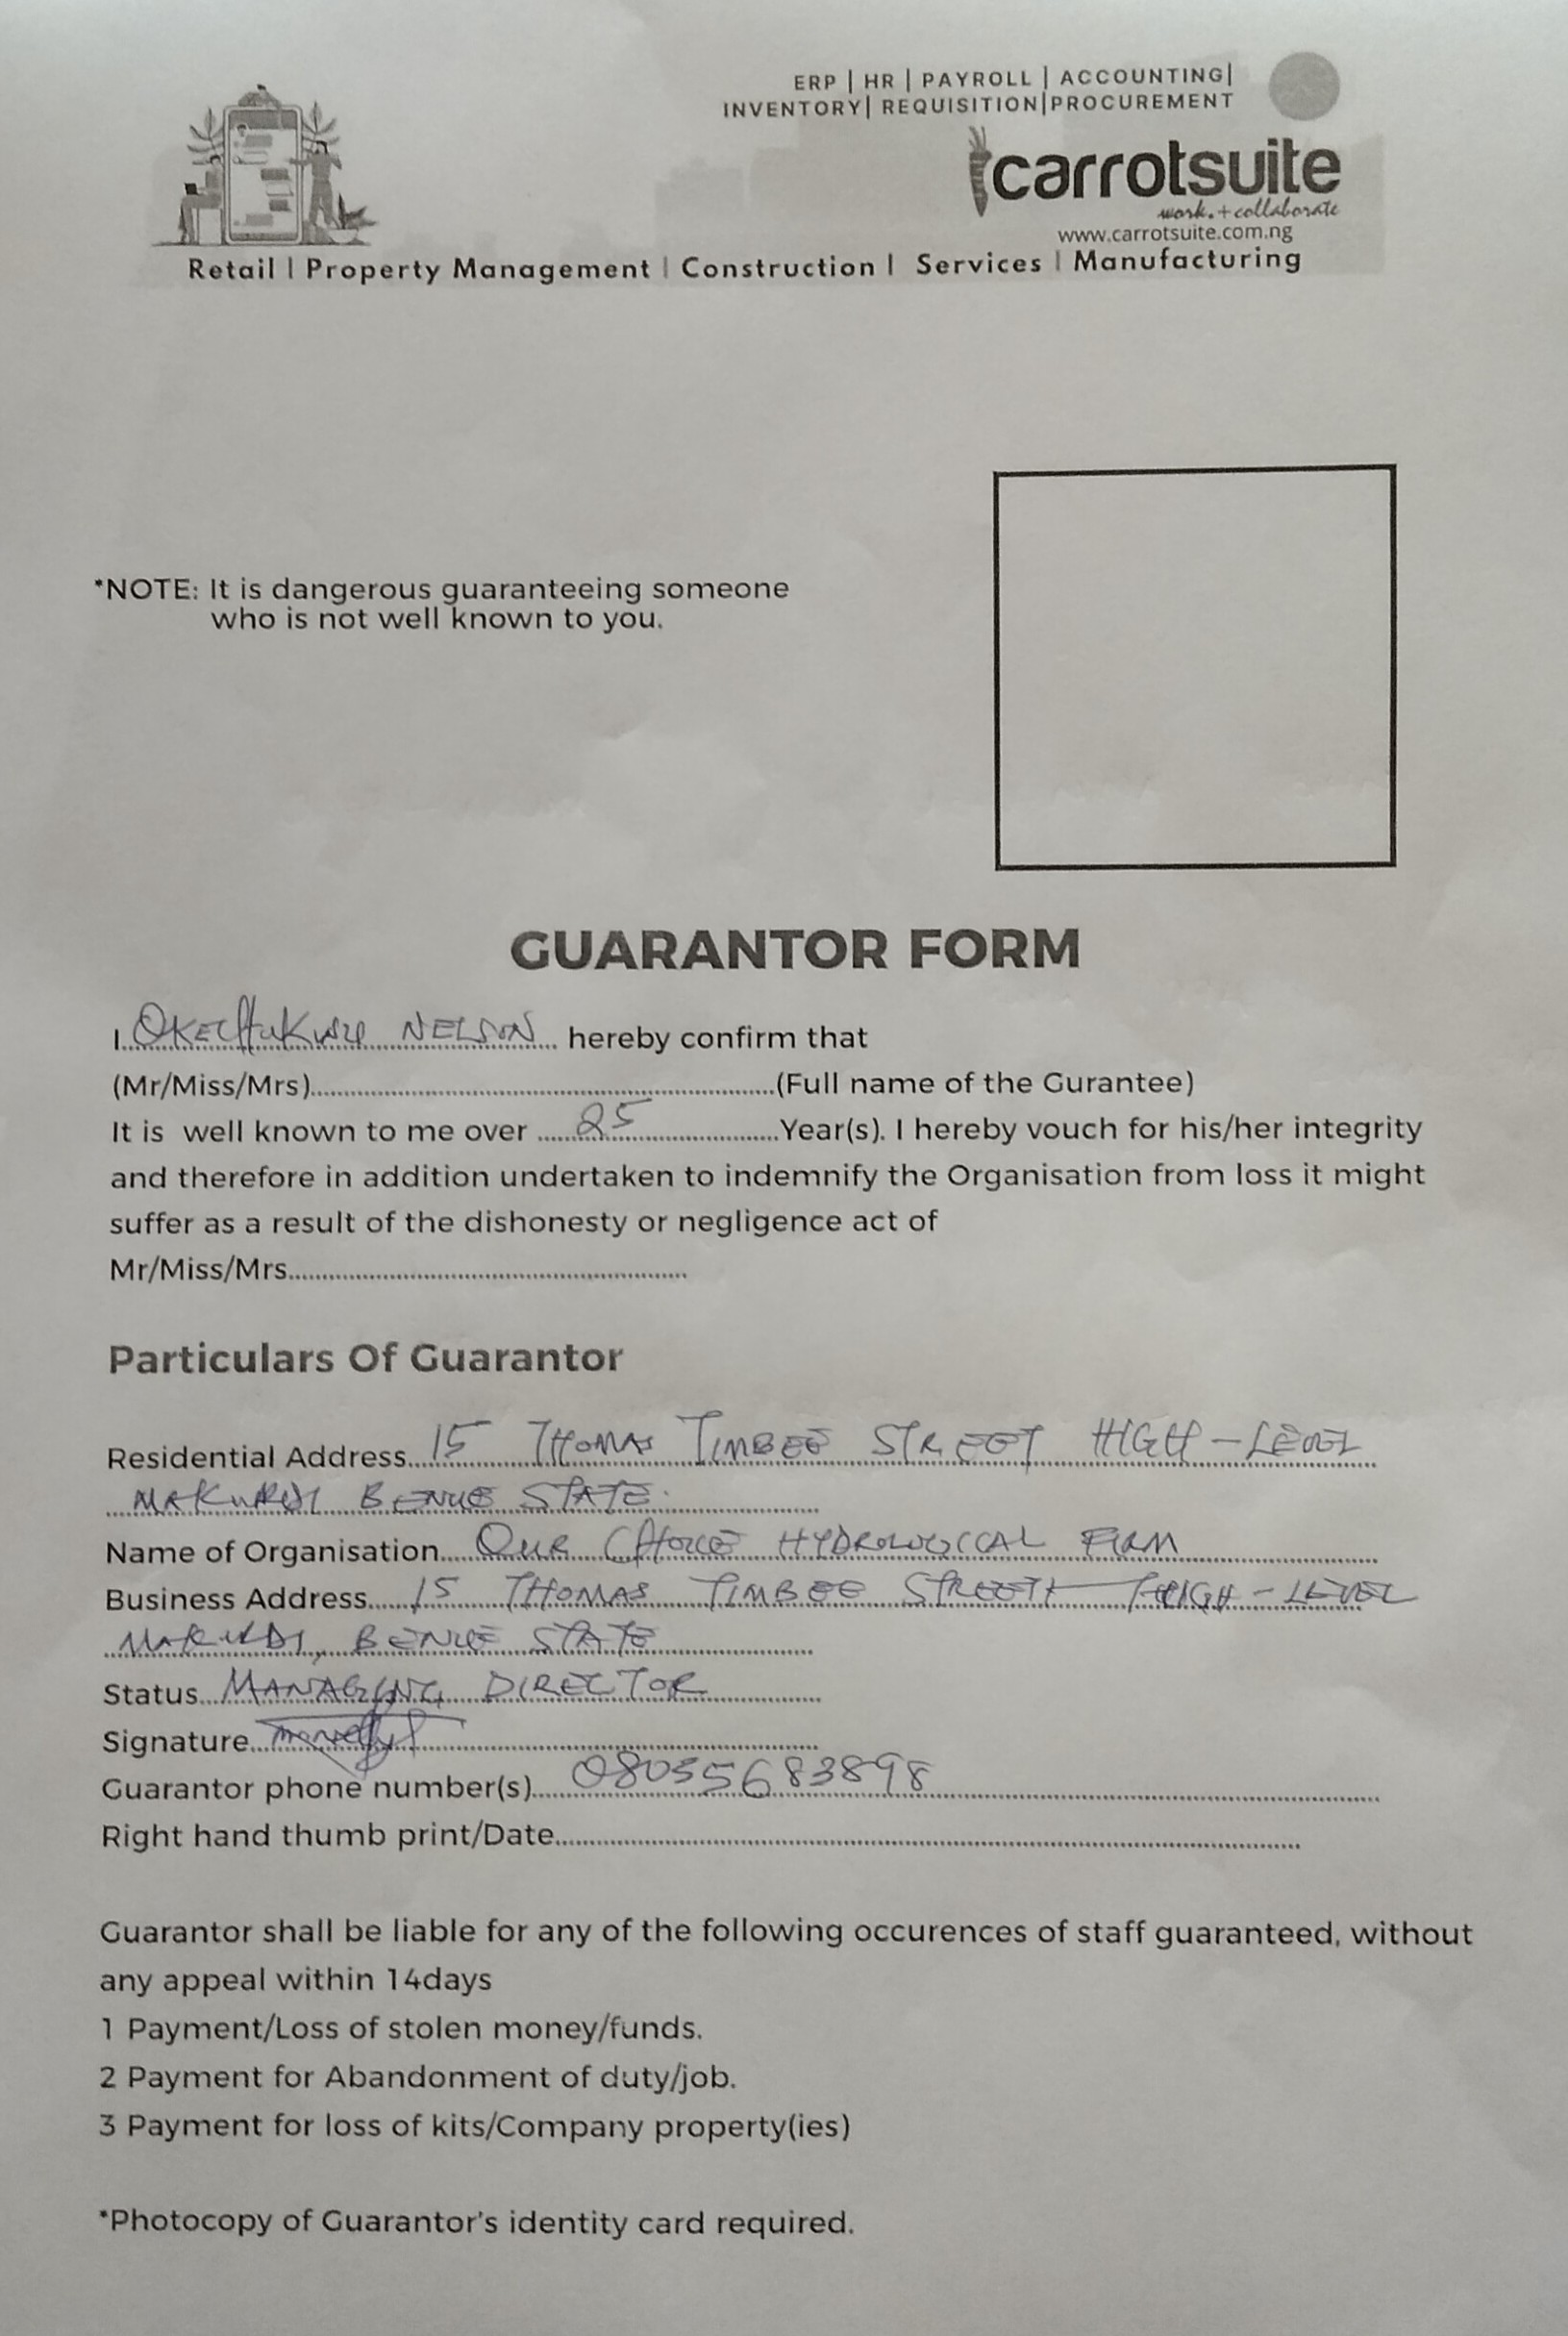 ERP | HR | PAYROLL | ACCOUNTING|
INVENTORY| REQUISITION|PROCUREMENT
carrotsuite
work.+collaborate
www.carrotsuite.com.ng
Retail | Property Management | Construction | Services | Manufacturing
*NOTE: It is dangerous guaranteeing someone
who is not well known to you.
GUARANTOR FORM
I OKECHUKWU NELSON hereby confirm that
(Mr/Miss/Mrs)..............................(Full name of the Gurantee)
It is well known to me over 25 Year(s). I hereby vouch for his/her integrity
and therefore in addition undertaken to indemnify the Organisation from loss it might
suffer as a result of the dishonesty or negligence act of
Mr/Miss/Mrs..............................
Particulars Of Guarantor
Residential Address 15 THOMAS TIMBEE STREET HIGH-LEVEL
MAKURDI BENUE STATE.
Name of Organisation OUR CHOICE HYDROLOGICAL FIRM
Business Address 15 THOMAS TIMBEE STREET HIGH-LEVEL
MAKURDI, BENUE STATE
Status MANAGING DIRECTOR
Signature
Guarantor phone number(s) 08035683898
Right hand thumb print/Date..............................
Guarantor shall be liable for any of the following occurences of staff guaranteed, without
any appeal within 14days
1 Payment/Loss of stolen money/funds.
2 Payment for Abandonment of duty/job.
3 Payment for loss of kits/Company property(ies)
*Photocopy of Guarantor's identity card required.